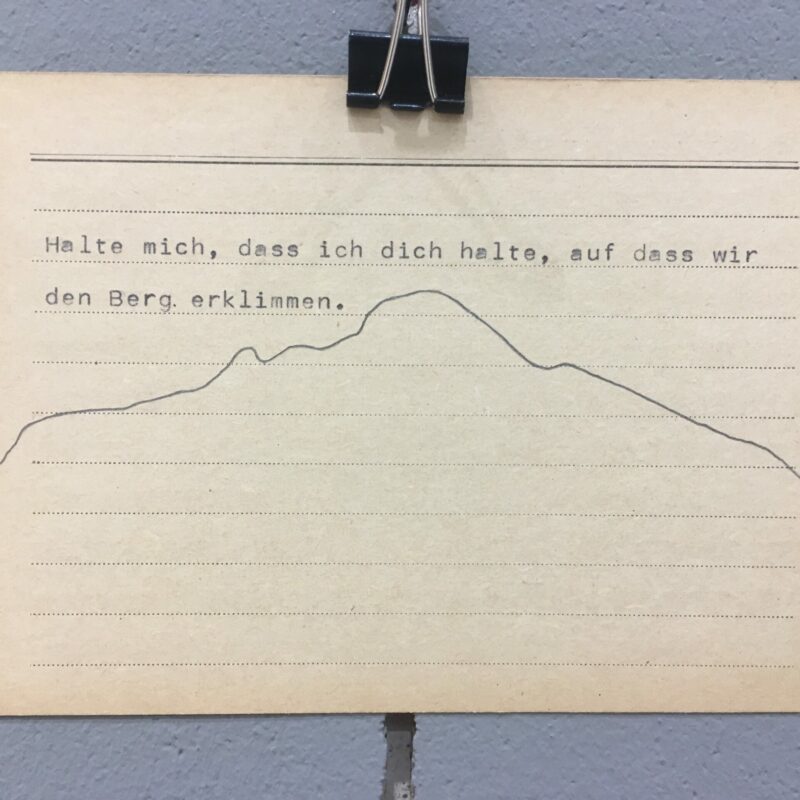 Halte mich, dass ich dich halte, auf dass wir
den Berg erklimmen.